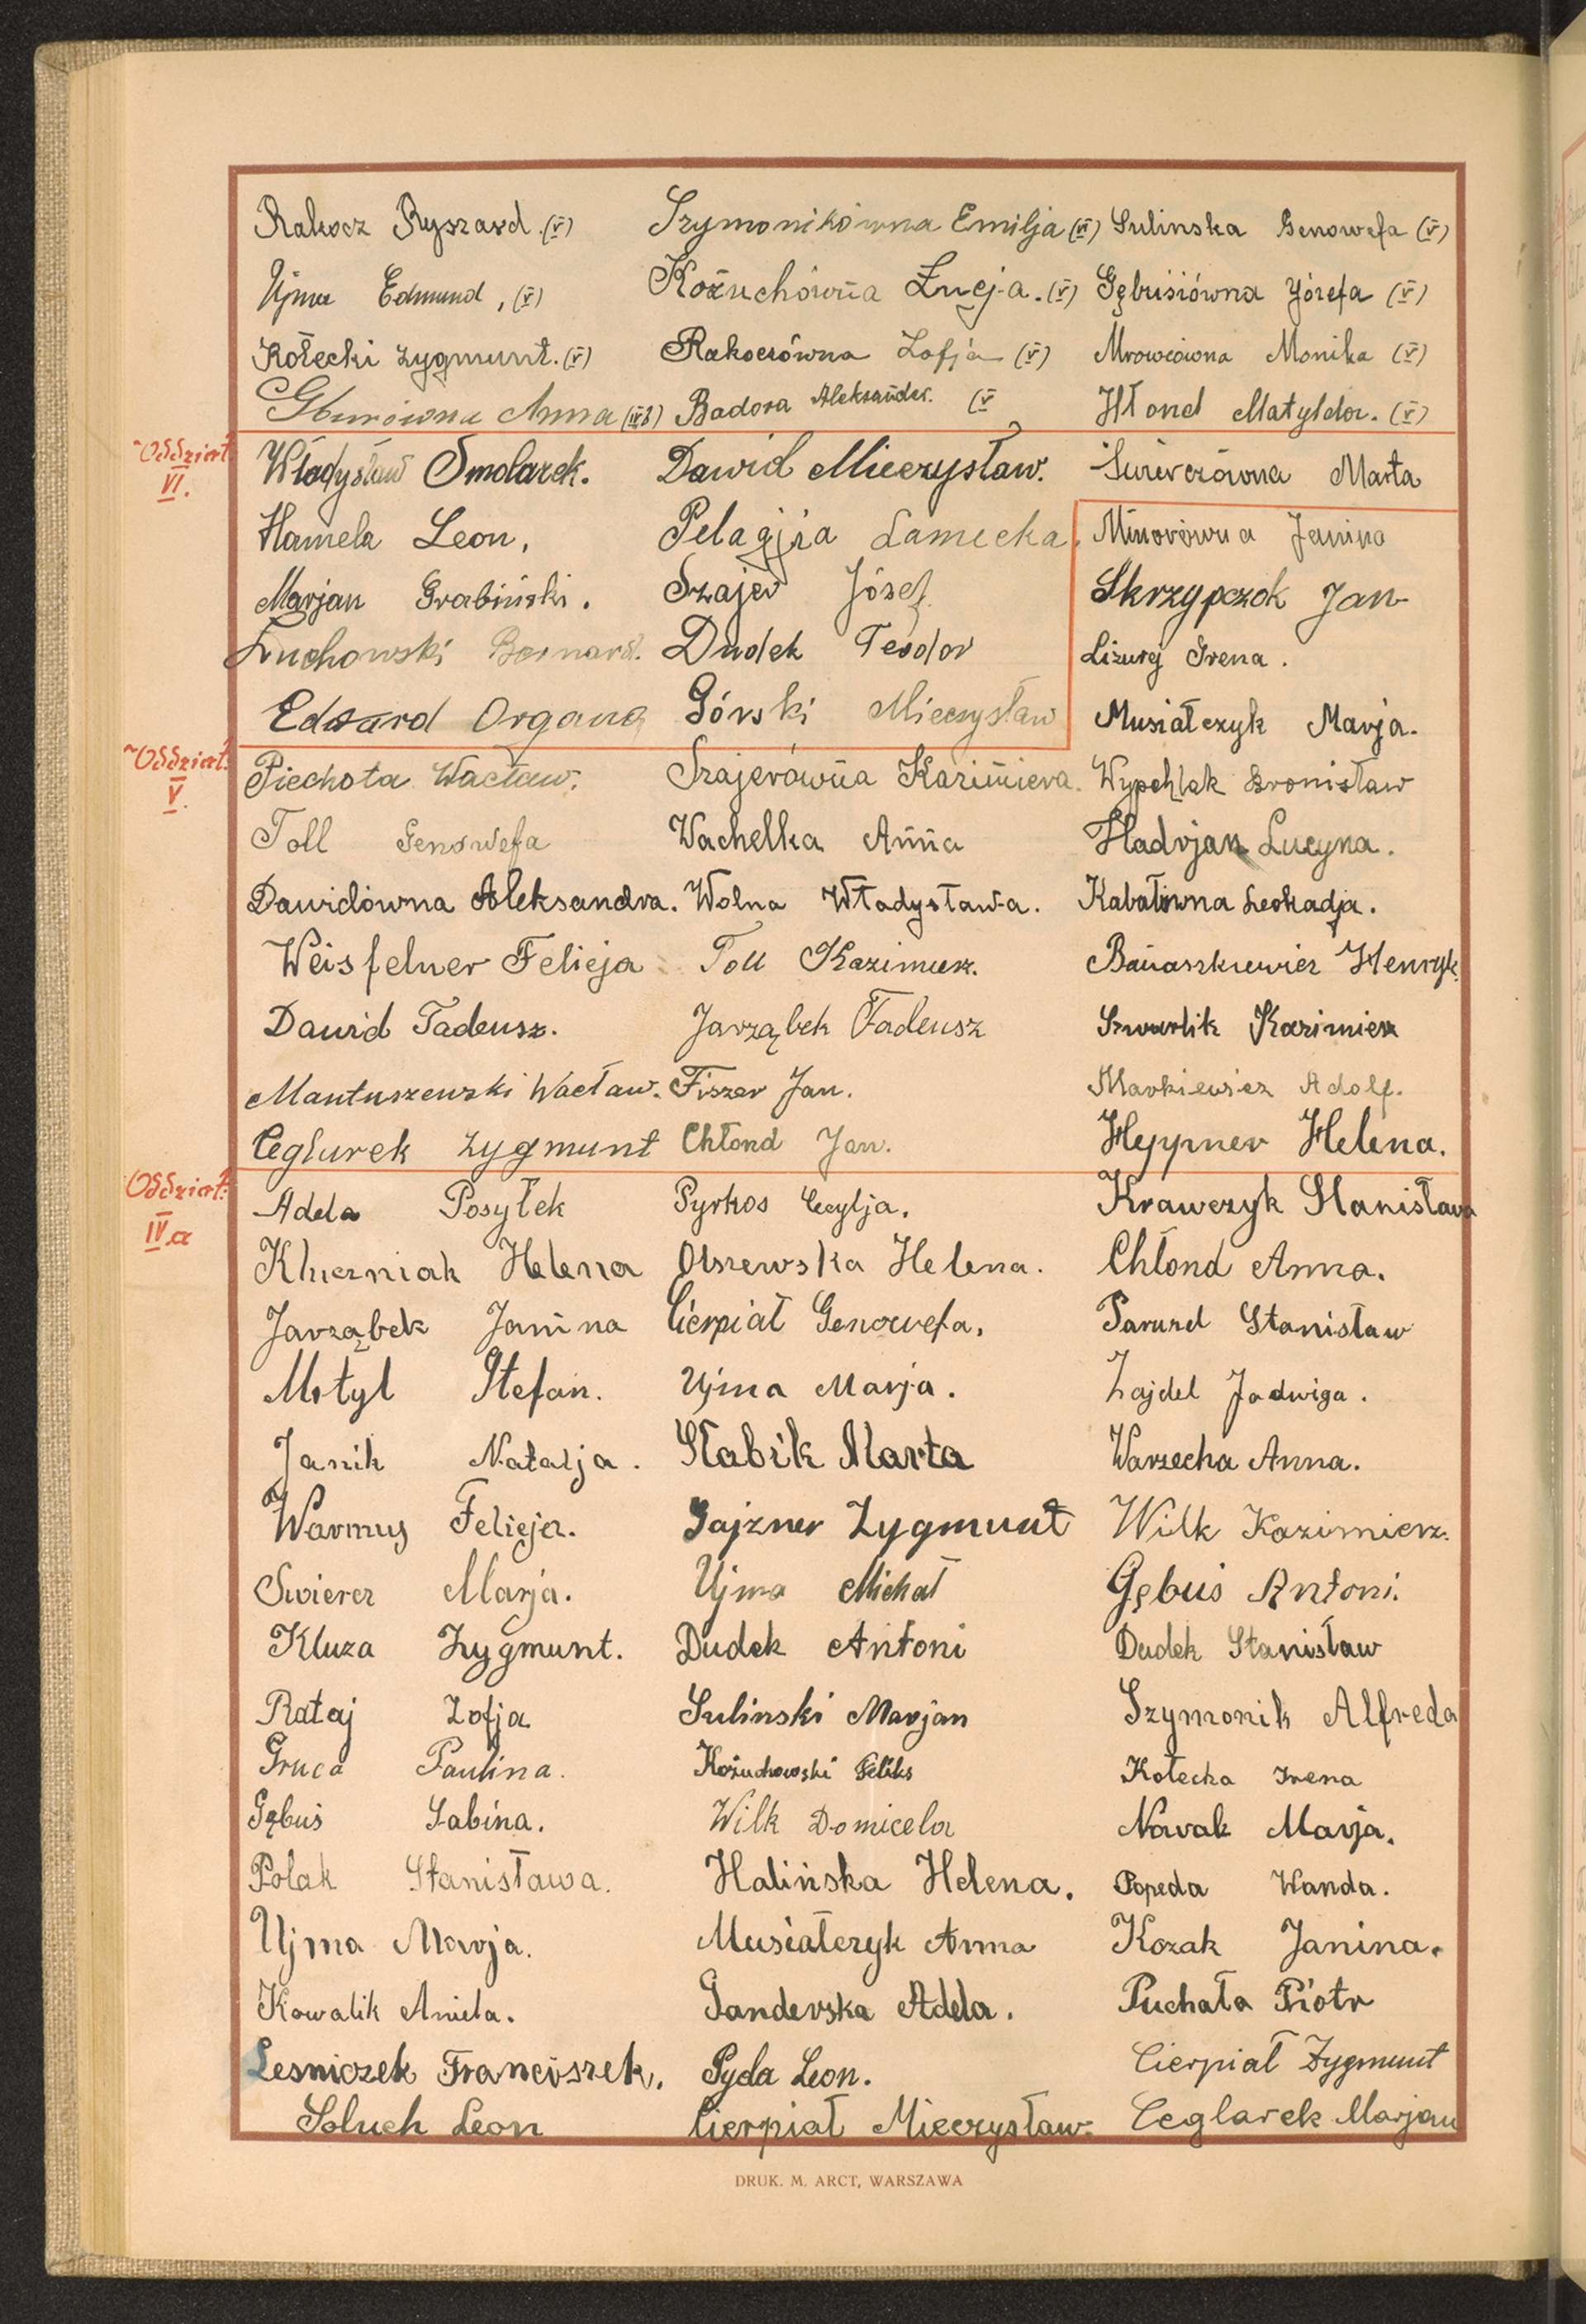 Rakocz Ryszard (V) Szymonikówna Emilja (VI) Sulinska Genowefa (V)
Ujma Edmund, (V) Kożuchówna Łucja. (V) Gębusiówna Józefa (V)
Kołecki Zygmunt. (V) Rakoczówna Zofja (V) Mrowcówna Monika (V)
Anna Badora Aleksander. (V Hłond Matylda. (V)
Oddział VI.
Władysław Smolarek. Dawid Mieczysław. Marta
Hamela Leon, Pelagja Lamecka. Janina
Marjan Grabiński. Szajer Józef Skrzypczok Jan
Łuchowski Bernard. Dudek Teodor Lizurej Irena.
Edward Organa Górski Mieczysław Musiałczyk Marja.
Oddział V.
Piechota Wacław. Szajerówna Kazimiera. Wypchlak Bronisław
Toll Genowefa Wachelka Anna Hadrjan Lucyna.
Dawidówna Aleksandra. Wolna Władysława. Kabałówna Leokadja.
Weisfelner Felicja Toll Kazimierz. Banaszkiewicz Henryk.
Dawid Tadeusz. Jarząbek Tadeusz Szwarlik Kazimierz
Mantuszewski Wacław. Fiszer Jan. Markiewicz Adolf.
Ceglurek Zygmunt Chłond Jan. Heppner Helena.
Oddział IV.a
Adela Posyłek Pyrkos Cecylja. Krawczyk Stanisława
Helena Olszewska Helena. Chłond Anna.
Jarząbek Janina Cierpiał Genowefa. Parund Stanisław
Motyl Stefan. Ujma Marja. Zajdel Jadwiga.
Janik Natalja. Słabik Marta Warzecha Anna.
Warmus Felicja. Gajzner Zygmunt Wilk Kazimierz.
Swiercz Marja. Ujma Michał Gębuś Antoni.
Kluza Zygmunt. Dudek Antoni Dudek Stanisław
Rataj Zofja Sulinski Marjan Szymonik Alfreda
Gruca Paulina. Kożuchowski Feliks Kołecka Irena
Gębuś Sabina. Wilk Domicela Nowak Marja.
Polak Stanisława. Halińska Helena. Popeda Wanda.
Ujma Marja. Musiałczyk Anna Kozak Janina.
Kowalik Aniela. Ganderska Adela. Puchała Piotr
Lesniczek Franciszek. Pyda Leon. Cierpiał Zygmunt
Soluch Leon Cierpiał Mieczysław. Ceglarek Marjan
DRUK. M. ARCT, WARSZAWA